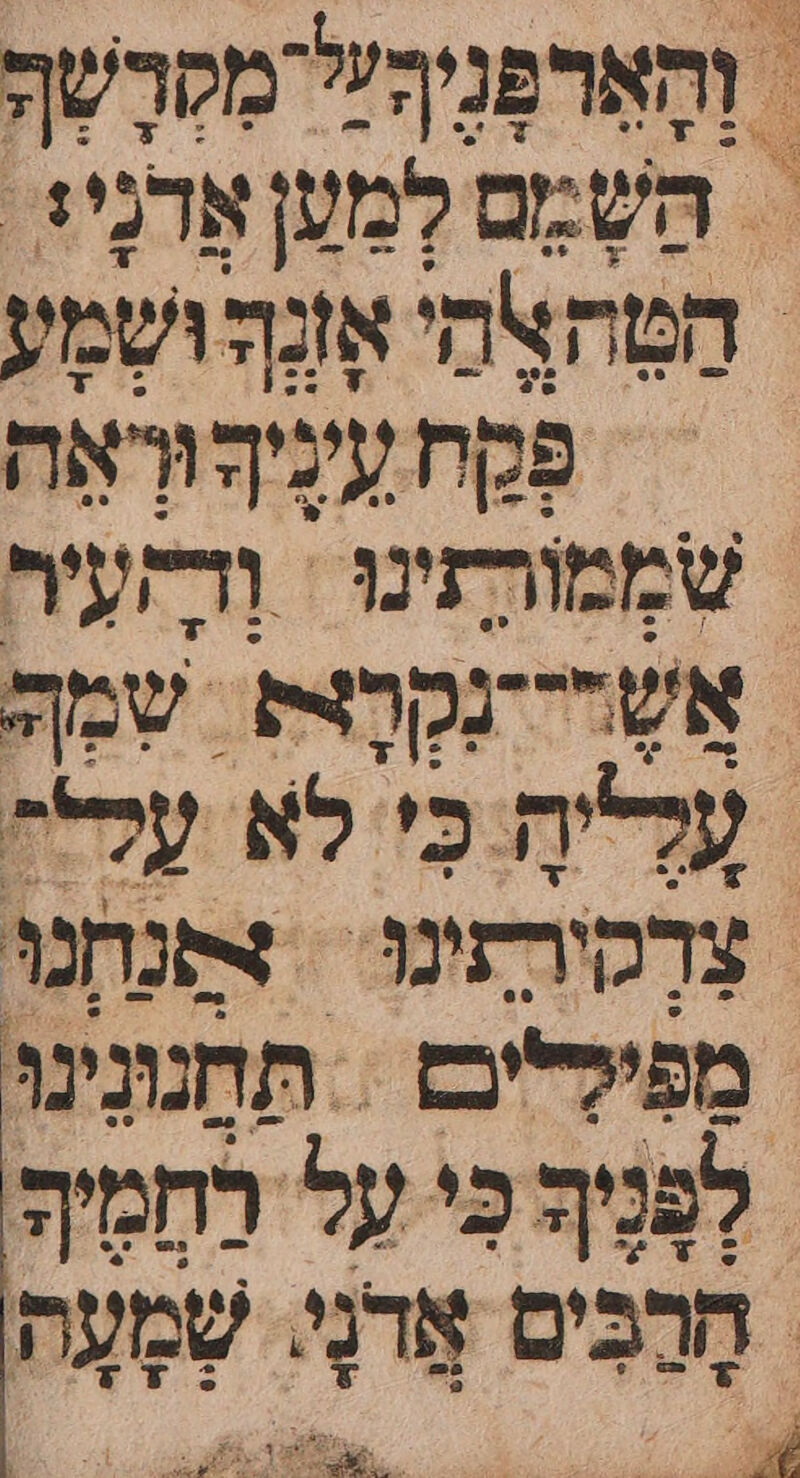 וְהָאֵר פָּנֶיךָ עַל־מִקְדָשְׁךָ
הַשָּׁמֵם לְמַעַן אֲדֹנָי׃
הַטֵּה אֱלֹהַי אָזְנְךָ וּשְׁמָע
פְּקַח עֵינֶיךָ וּרְאֵה
שֹׁמְמוֹתֵינוּ וְהָעִיר
אֲשֶׁר־־נִקְרָא שִׁמְךָ
עָלֶיהָ כִּי לֹא עַל־
צִדְקוֹתֵינוּ אֲנַחְנוּ
מַפִּילִים תַּחֲנוּנֵינוּ
לְפָנֶיךָ כִּי עַל רַחֲמֶיךָ
הָרַבִּים אֲדֹנָי שְׁמָעָה